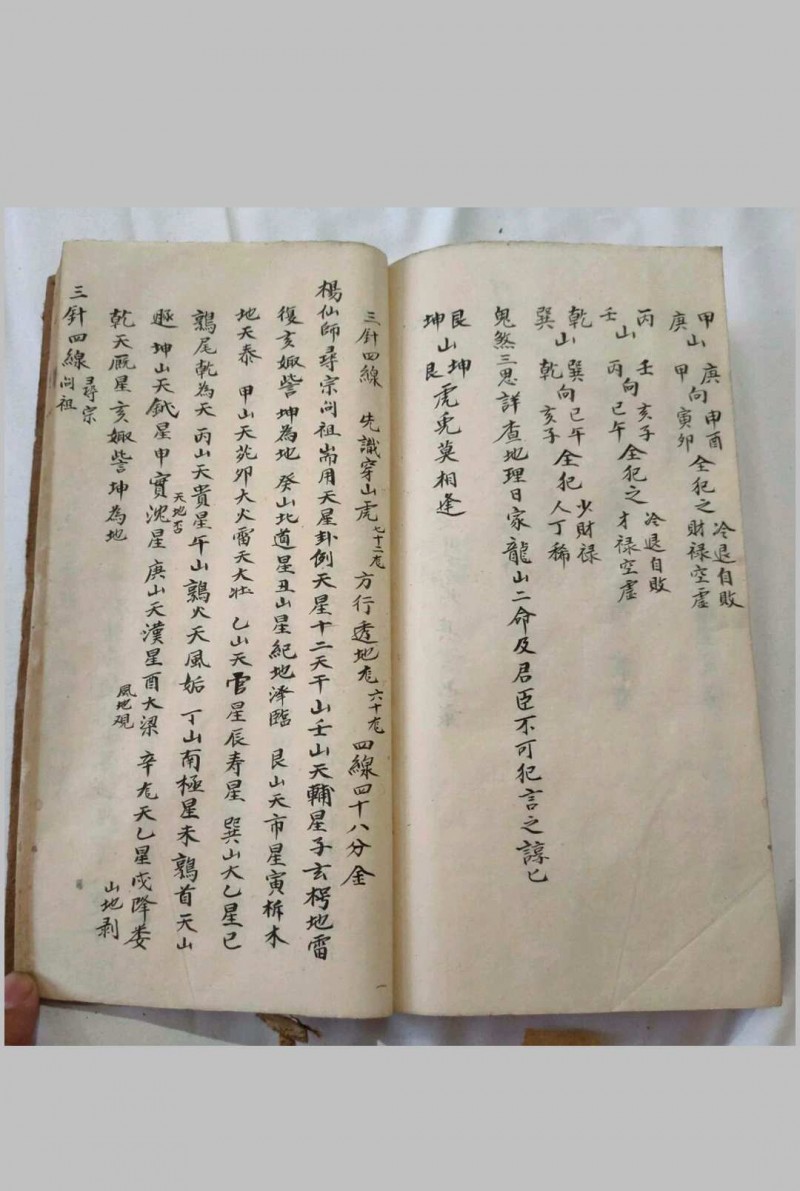 甲山 庚向 申酉 全犯之 冷退自敗
庚 甲 寅卯 財禄空虛
丙山 壬向 亥子 全犯之 冷退自敗
壬 丙 巳午 才禄空虛
乾山 巽向 巳午 全犯 少財禄
巽 乾 亥子 人丁稀
鬼煞三思詳查地理日家龍山二命及君臣不可犯言之諄匕
艮山坤 虎兎莫相逢
坤 艮
三針四線 先識穿山虎 七十二龙 方行透地龙 六十龙 四線四十八分金
楊仙師尋宗问祖耑用天星卦例天星十二天干山壬山天輔星子玄枵地雷
復亥娵訾坤為地 癸山北道星丑山星紀地泽臨 艮山天市星寅析木
地天泰 甲山天苑卯大火雷天大壮 乙山天官星辰寿星 巽山太乙星巳
鶉尾乾為天 丙山天貴星午山鶉火天風姤 丁山南極星未鶉首天山
遯 坤山天鉞星申實沈星 天地否 庚山天漢星酉大梁 風地观 辛龙天乙星戌降娄 山地剥
乾天厩星亥娵訾坤為地
三針四線 尋宗问祖